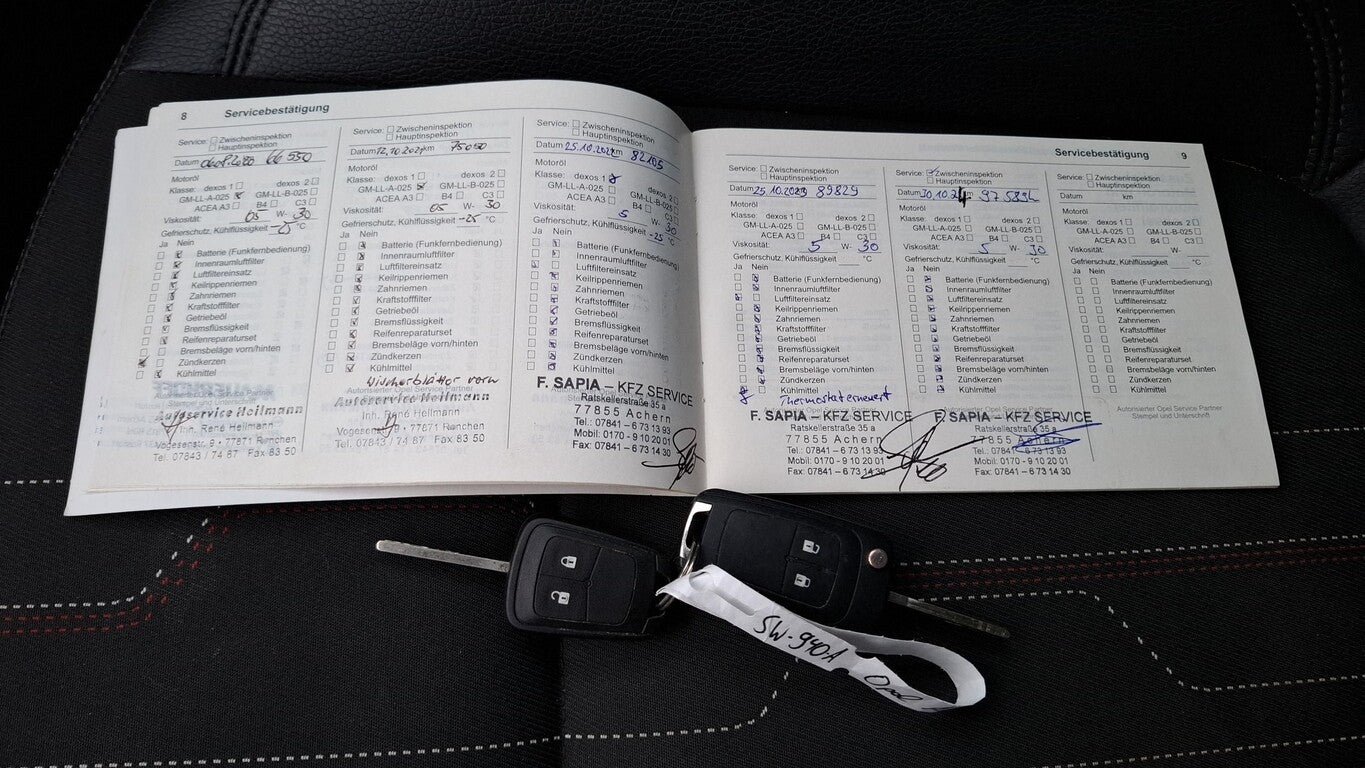 8 Servicebestätigung
Service: Zwischeninspektion
Hauptinspektion
Datum 66 550
Motoröl
Klasse: dexos 1 dexos 2
GM-LL-A-025 GM-LL-B-025
ACEA A3 B4 C3
Viskosität: 05 W- 30
Gefrierschutz, Kühlflüssigkeit -25 °C
Ja Nein
Batterie (Funkfernbedienung)
Innenraumluftfilter
Luftfiltereinsatz
Keilrippenriemen
Zahnriemen
Kraftstofffilter
Getriebeöl
Bremsflüssigkeit
Reifenreparaturset
Bremsbeläge vorn/hinten
Zündkerzen
Kühlmittel
Autoservice Heilmann
Inh. René Heilmann
Vogesenstr. 9 • 77871 Renchen
Tel. 07843 / 74 87 Fax 83 50
Service: Zwischeninspektion
Hauptinspektion
Datum 12.10.2021 km 75050
Motoröl
Klasse: dexos 1 dexos 2
GM-LL-A-025 GM-LL-B-025
ACEA A3 B4 C3
Viskosität: 05 W- 30
Gefrierschutz, Kühlflüssigkeit -25 °C
Ja Nein
Batterie (Funkfernbedienung)
Innenraumluftfilter
Luftfiltereinsatz
Keilrippenriemen
Zahnriemen
Kraftstofffilter
Getriebeöl
Bremsflüssigkeit
Reifenreparaturset
Bremsbeläge vorn/hinten
Zündkerzen
Kühlmittel
Wischerblätter vorn
Autorisierter Opel Service Partner
Autoservice Heilmann
Inh. René Heilmann
9 • 77871 Renchen
Tel. 07843 / 74 87 Fax 83 50
Service: Zwischeninspektion
Hauptinspektion
Datum 25.10.202 km 82105
Motoröl
Klasse: dexos 1 dexos 2
GM-LL-A-025 GM-LL-B-025
ACEA A3 B4 C3
Viskosität: 5 W- 30
Gefrierschutz, Kühlflüssigkeit -25 °C
Ja Nein
Batterie (Funkfernbedienung)
Innenraumluftfilter
Luftfiltereinsatz
Keilrippenriemen
Zahnriemen
Kraftstofffilter
Getriebeöl
Bremsflüssigkeit
Reifenreparaturset
Bremsbeläge vorn/hinten
Zündkerzen
Kühlmittel
F. SAPIA – KFZ SERVICE
Ratskellerstraße 35 a
77855 Achern
Tel.: 07841 – 6 73 13 93
Mobil: 0170 - 9 10 20 01
Fax: 07841 – 6 73 14 30
Servicebestätigung 9
Service: Zwischeninspektion
Hauptinspektion
Datum 25.10.2023 89829
Motoröl
Klasse: dexos 1 dexos 2
GM-LL-A-025 GM-LL-B-025
ACEA A3 B4 C3
Viskosität: 5 W- 30
Gefrierschutz, Kühlflüssigkeit °C
Ja Nein
Batterie (Funkfernbedienung)
Innenraumluftfilter
Luftfiltereinsatz
Keilrippenriemen
Zahnriemen
Kraftstofffilter
Getriebeöl
Bremsflüssigkeit
Reifenreparaturset
Bremsbeläge vorn/hinten
Zündkerzen
Kühlmittel
Thermostat erneuert
F. SAPIA – KFZ SERVICE
Ratskellerstraße 35 a
77855 Achern
Tel.: 07841 – 6 73 13 93
Mobil: 0170 - 9 10 20 01
Fax: 07841 – 6 73 14 30
Service: Zwischeninspektion
Hauptinspektion
Datum 30.10.24
Motoröl
Klasse: dexos 1 dexos 2
GM-LL-A-025 GM-LL-B-025
ACEA A3 B4 C3
Viskosität: 5 W- 30
Gefrierschutz, Kühlflüssigkeit °C
Ja Nein
Batterie (Funkfernbedienung)
Innenraumluftfilter
Luftfiltereinsatz
Keilrippenriemen
Zahnriemen
Kraftstofffilter
Getriebeöl
Bremsflüssigkeit
Reifenreparaturset
Bremsbeläge vorn/hinten
Zündkerzen
Kühlmittel
F. SAPIA – KFZ SERVICE
Ratskellerstraße 35 a
77855 Achern
Tel.: 07841 – 6 73 13 93
Mobil: 0170 - 9 10 20 01
Fax: 07841 – 6 73 14 30
Service: Zwischeninspektion
Hauptinspektion
Datum km
Motoröl
Klasse: dexos 1 dexos 2
GM-LL-A-025 GM-LL-B-025
ACEA A3 B4 C3
Viskosität: W-
Gefrierschutz, Kühlflüssigkeit °C
Ja Nein
Batterie (Funkfernbedienung)
Innenraumluftfilter
Luftfiltereinsatz
Keilrippenriemen
Zahnriemen
Kraftstofffilter
Getriebeöl
Bremsflüssigkeit
Reifenreparaturset
Bremsbeläge vorn/hinten
Zündkerzen
Kühlmittel
Autorisierter Opel Service Partner
Stempel und Unterschrift
SW-940A
Opel